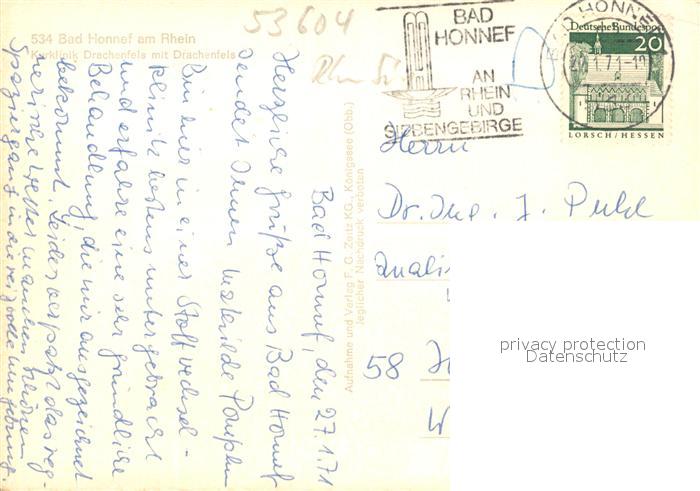 534 Bad Honnef am Rhein
Kurklinik Drachenfels mit Drachenfels
53604
Rhn Si
BAD
HONNEF
AN
RHEIN
UND
SIEBENGEBIRGE
BAD HONNEF
1.71-1
Deutsche Bundespost
20
LORSCH/HESSEN
Bad Honnef, den 27.1.71
Herzliche Grüße aus Bad Honnef
sendet Ihnen
Bin hier in einer Stoffwechsel-
klinik bestens untergebracht
und erfahre eine sehr gründliche
Behandlung, die mir ausgezeichnet
bekommt. Leider verpatzt das reg-
nerische Wetter manchen schönen
Spaziergang in die reizvolle Umgebung.
Aufnahme und Verlag F. G. Zeitz KG., Königssee (Obb.)
Jeglicher Nachdruck verboten
Herrn
Dr. Ing. J.
58
privacy protection
Datenschutz